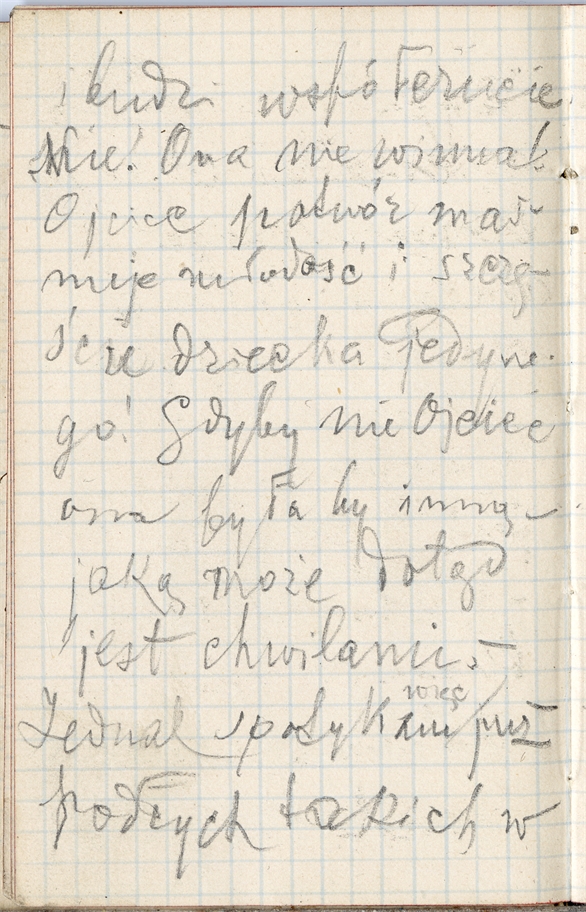 i budzi współczucie
Nie! Ona nie winna!
Ojciec potwór mar-
nuje młodość i szczę-
ście dziecka jedyne-
go! Gdyby nie Ojciec
ona była by inną -
jaką może dotąd
jest chwilami. -
Jednak spotykam więc
podłych takich w